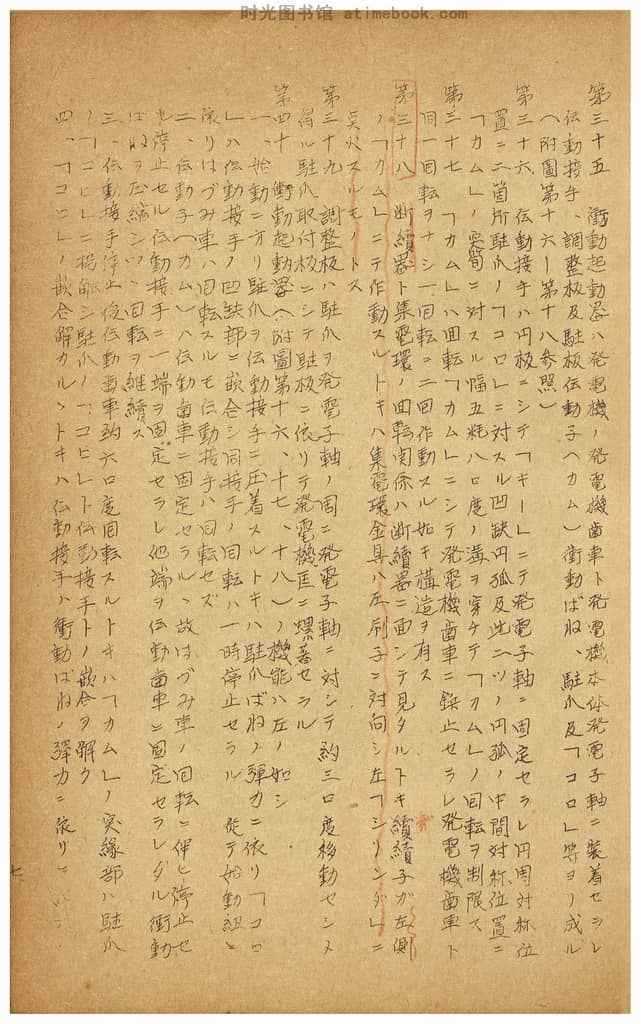 时光图书馆 atimebook.com
第三十五 衝動起動器ハ発電機ノ発電機歯車ト発電機本体発電子軸ニ装着セラレ
伝動接手、調整板及駐板伝動子(カム)衝動ばね、駐爪及「コロ」等ヨリ成ル
(附圖第十六ー第十八参照)
第三十六 伝動接手ハ円板ニシテ「キー」ニテ発電子軸ニ固定セラレ円周対称位
置ニ二箇所駐爪ノ「コロ」ニ対スル凹缺円弧及此二ツノ円弧ノ中間対称位置ニ
「カム」ノ突筍ニ対スル幅五粍八〇度ノ溝ヲ穿チテ「カム」ノ回転ヲ制限ス
第三十七 「カム」ハ回転「カム」ニシテ発電機歯車ニ鋲止セラレ発電機歯車ト
同一回転ヲナシ一回転ニ二回作動スル如キ構造ヲ有ス
第三十八 断續器ト集電環ノ回転関係ハ断續器ニ面シテ見タルトキ續續子ガ左側
ノ「カム」ニテ作動スルトキハ集電環金具ハ左刷子ニ対向シ左「シリンダ」ニ
点火スルモノトス
第三十九 調整板ハ駐爪ヲ発電子軸ノ周ニ発電子軸ニ対シテ約三〇度移動セシメ
得ル駐爪取付板ニシテ駐板ニ依リテ発電機匡ニ螺着セラル
第四十 衝動起動器(附圖第十六、十七、十八)ノ機能ハ左ノ如シ
一、始動ニ方リ駐爪ヲ伝動接手ニ圧着スルトキハ駐爪ばねノ弾力ニ依リ「コロ
」ハ伝動接手ノ凹缺部ニ嵌合シ同接手ノ回転ハ一時停止セラル 従テ始動組ニ
依リはづみ車ハ回転スルモ伝動接手ハ回転セズ
二、伝動子(カム)ハ伝動歯車ニ固定セラル、故はづみ車ノ回転ニ伴ヒ停止セ
ル停止セル伝動接手ニ一端ヲ固定セラレ他端ヲ伝動歯車ニ固定セラレタル衝動
ばねヲ圧縮シツツ回転ヲ継續ス
三、伝動接手停止后伝動歯車約六〇度回転スルトキハ「カム」ノ突縁部ハ駐爪
ノ「コロ」ニ接觸シ駐爪ノ「コロ」ト伝動接手トノ嵌合ヲ解ク
四、「コロ」ノ嵌合解カルヽトキハ伝動接手ハ衝動ばねノ弾力ニ依リ
七